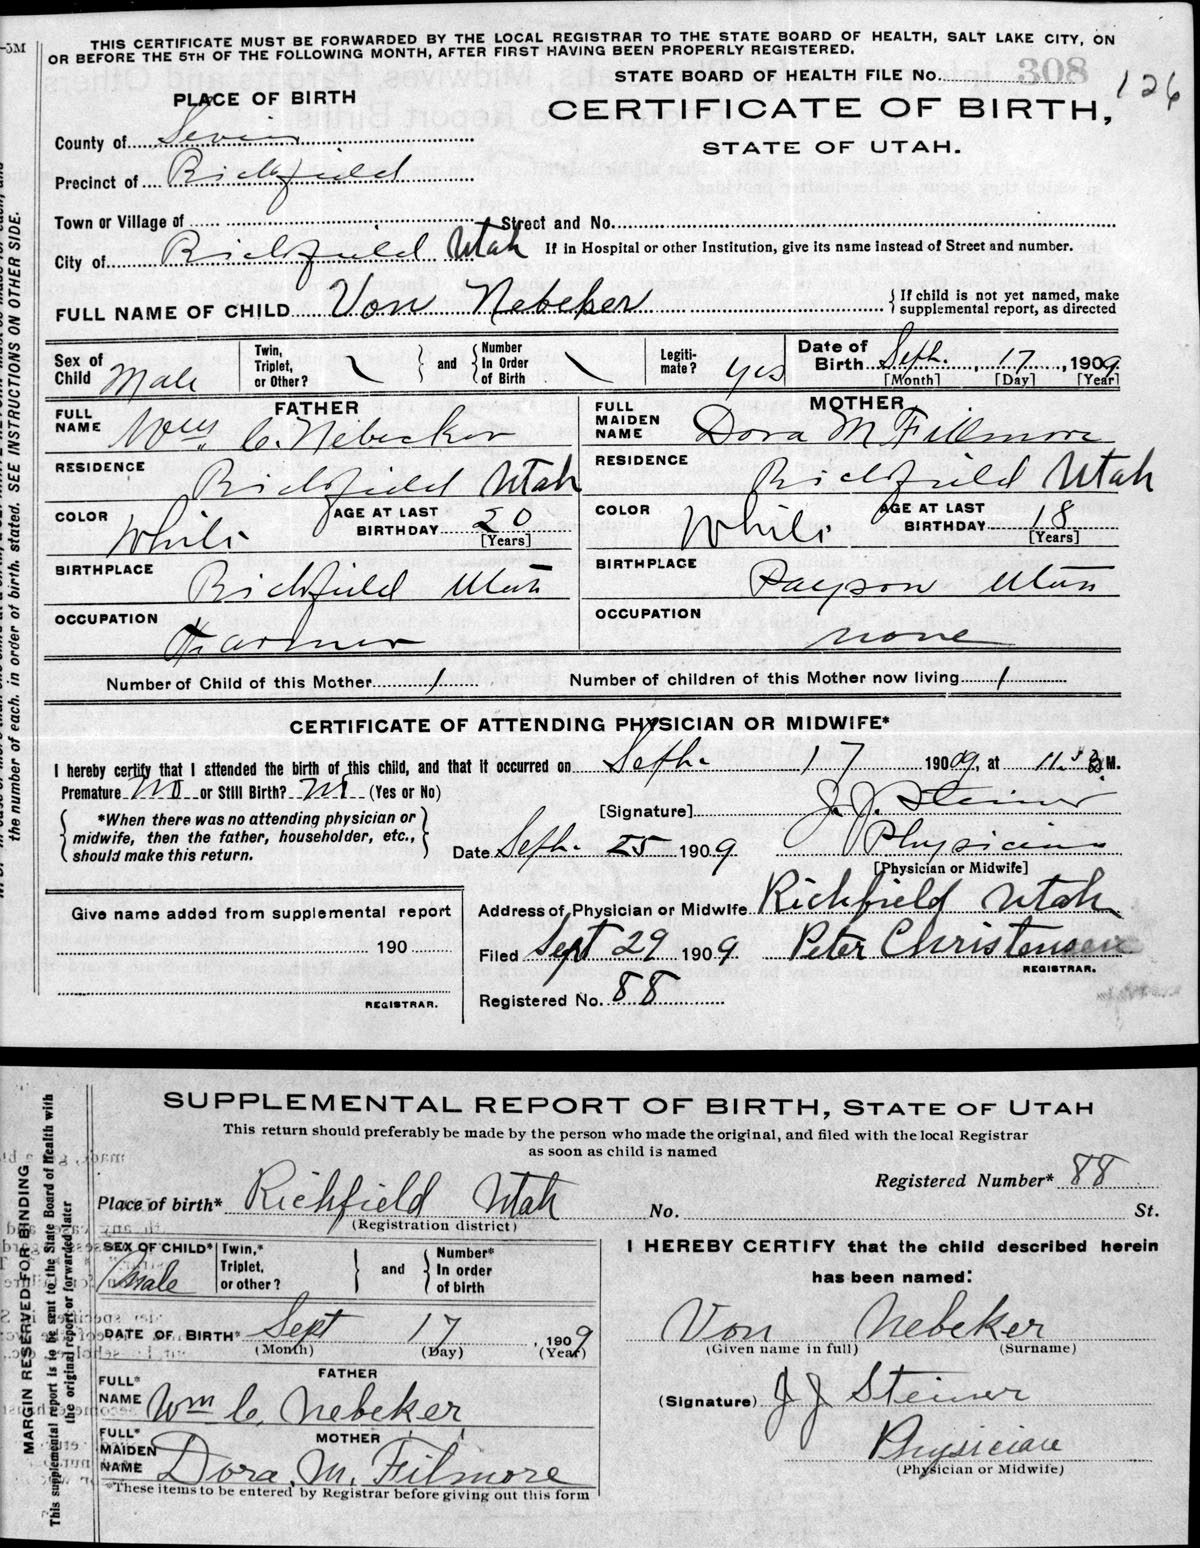 -5M
THIS CERTIFICATE MUST BE FORWARDED BY THE LOCAL REGISTRAR TO THE STATE BOARD OF HEALTH, SALT LAKE CITY, ON
OR BEFORE THE 5TH OF THE FOLLOWING MONTH, AFTER FIRST HAVING BEEN PROPERLY REGISTERED.
STATE BOARD OF HEALTH FILE No. 308 126
PLACE OF BIRTH
CERTIFICATE OF BIRTH,
STATE OF UTAH.
County of Sevier
Precinct of Richfield
Town or Village of Street and No.
City of Richfield Utah If in Hospital or other Institution, give its name instead of Street and number.
FULL NAME OF CHILD Von Nebeker { If child is not yet named, make supplemental report, as directed
Sex of Child Male Twin, Triplet, or Other? and Number In Order of Birth Legiti-mate? yes Date of Birth Sept. 17, 1909
[Month] [Day] [Year]
FATHER MOTHER
FULL NAME Wm C. Nebecker FULL MAIDEN NAME Dora M Fillmore
RESIDENCE Richfield Utah RESIDENCE Richfield Utah
COLOR White AGE AT LAST BIRTHDAY 20 [Years] COLOR White AGE AT LAST BIRTHDAY 18 [Years]
BIRTHPLACE Richfield Utah BIRTHPLACE Payson Utah
OCCUPATION Farmer OCCUPATION none
Number of Child of this Mother 1 Number of children of this Mother now living 1
CERTIFICATE OF ATTENDING PHYSICIAN OR MIDWIFE*
I hereby certify that I attended the birth of this child, and that it occurred on Sept. 17 1909, at 11.30 M.
Premature No or Still Birth? No (Yes or No)
*When there was no attending physician or midwife, then the father, householder, etc., should make this return.
[Signature] J. J. Steiner
Date Sept. 25 1909 Physician
[Physician or Midwife]
Give name added from supplemental report
190
REGISTRAR.
Address of Physician or Midwife Richfield Utah
Filed Sept 29 1909 Peter Christensen
REGISTRAR.
Registered No. 88
the number of each, in order of birth, stated. SEE INSTRUCTIONS ON OTHER SIDE.
SUPPLEMENTAL REPORT OF BIRTH, STATE OF UTAH
This return should preferably be made by the person who made the original, and filed with the local Registrar
as soon as child is named
Registered Number* 88
Place of birth* Richfield Utah No. St.
(Registration district)
SEX OF CHILD* Male Twin,* Triplet, or other? and Number* In order of birth
DATE OF BIRTH* Sept 17, 1909
(Month) (Day) (Year)
FATHER
FULL* NAME Wm C. Nebeker
MOTHER
FULL* MAIDEN NAME Dora M. Filmore
*These items to be entered by Registrar before giving out this form
I HEREBY CERTIFY that the child described herein
has been named:
Von Nebeker
(Given name in full) (Surname)
(Signature) J J Steiner
Physician
(Physician or Midwife)
MARGIN RESERVED FOR BINDING
This supplemental report is to be sent to the State Board of Health with
the original report or forwarded later